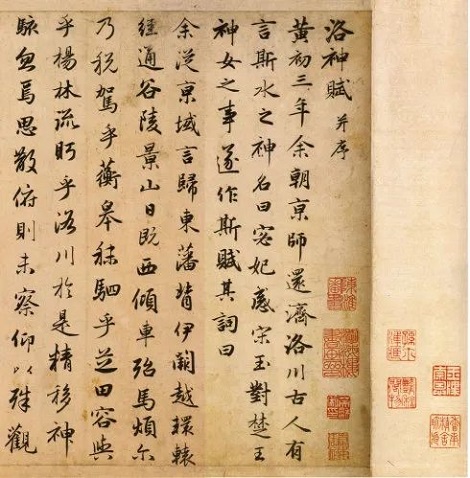 洛神賦 并序
黃初三年余朝京師還濟洛川古人有
言斯水之神名曰宓妃感宋玉對楚王
神女之事遂作斯賦其詞曰
余從京域言歸東藩背伊闕越轘轅
經通谷陵景山日既西傾車殆馬煩尒
乃税駕乎蘅皋秣駟乎芝田容與
乎楊林流眄乎洛川於是精移神
駭忽焉思散俯則未察仰以殊觀